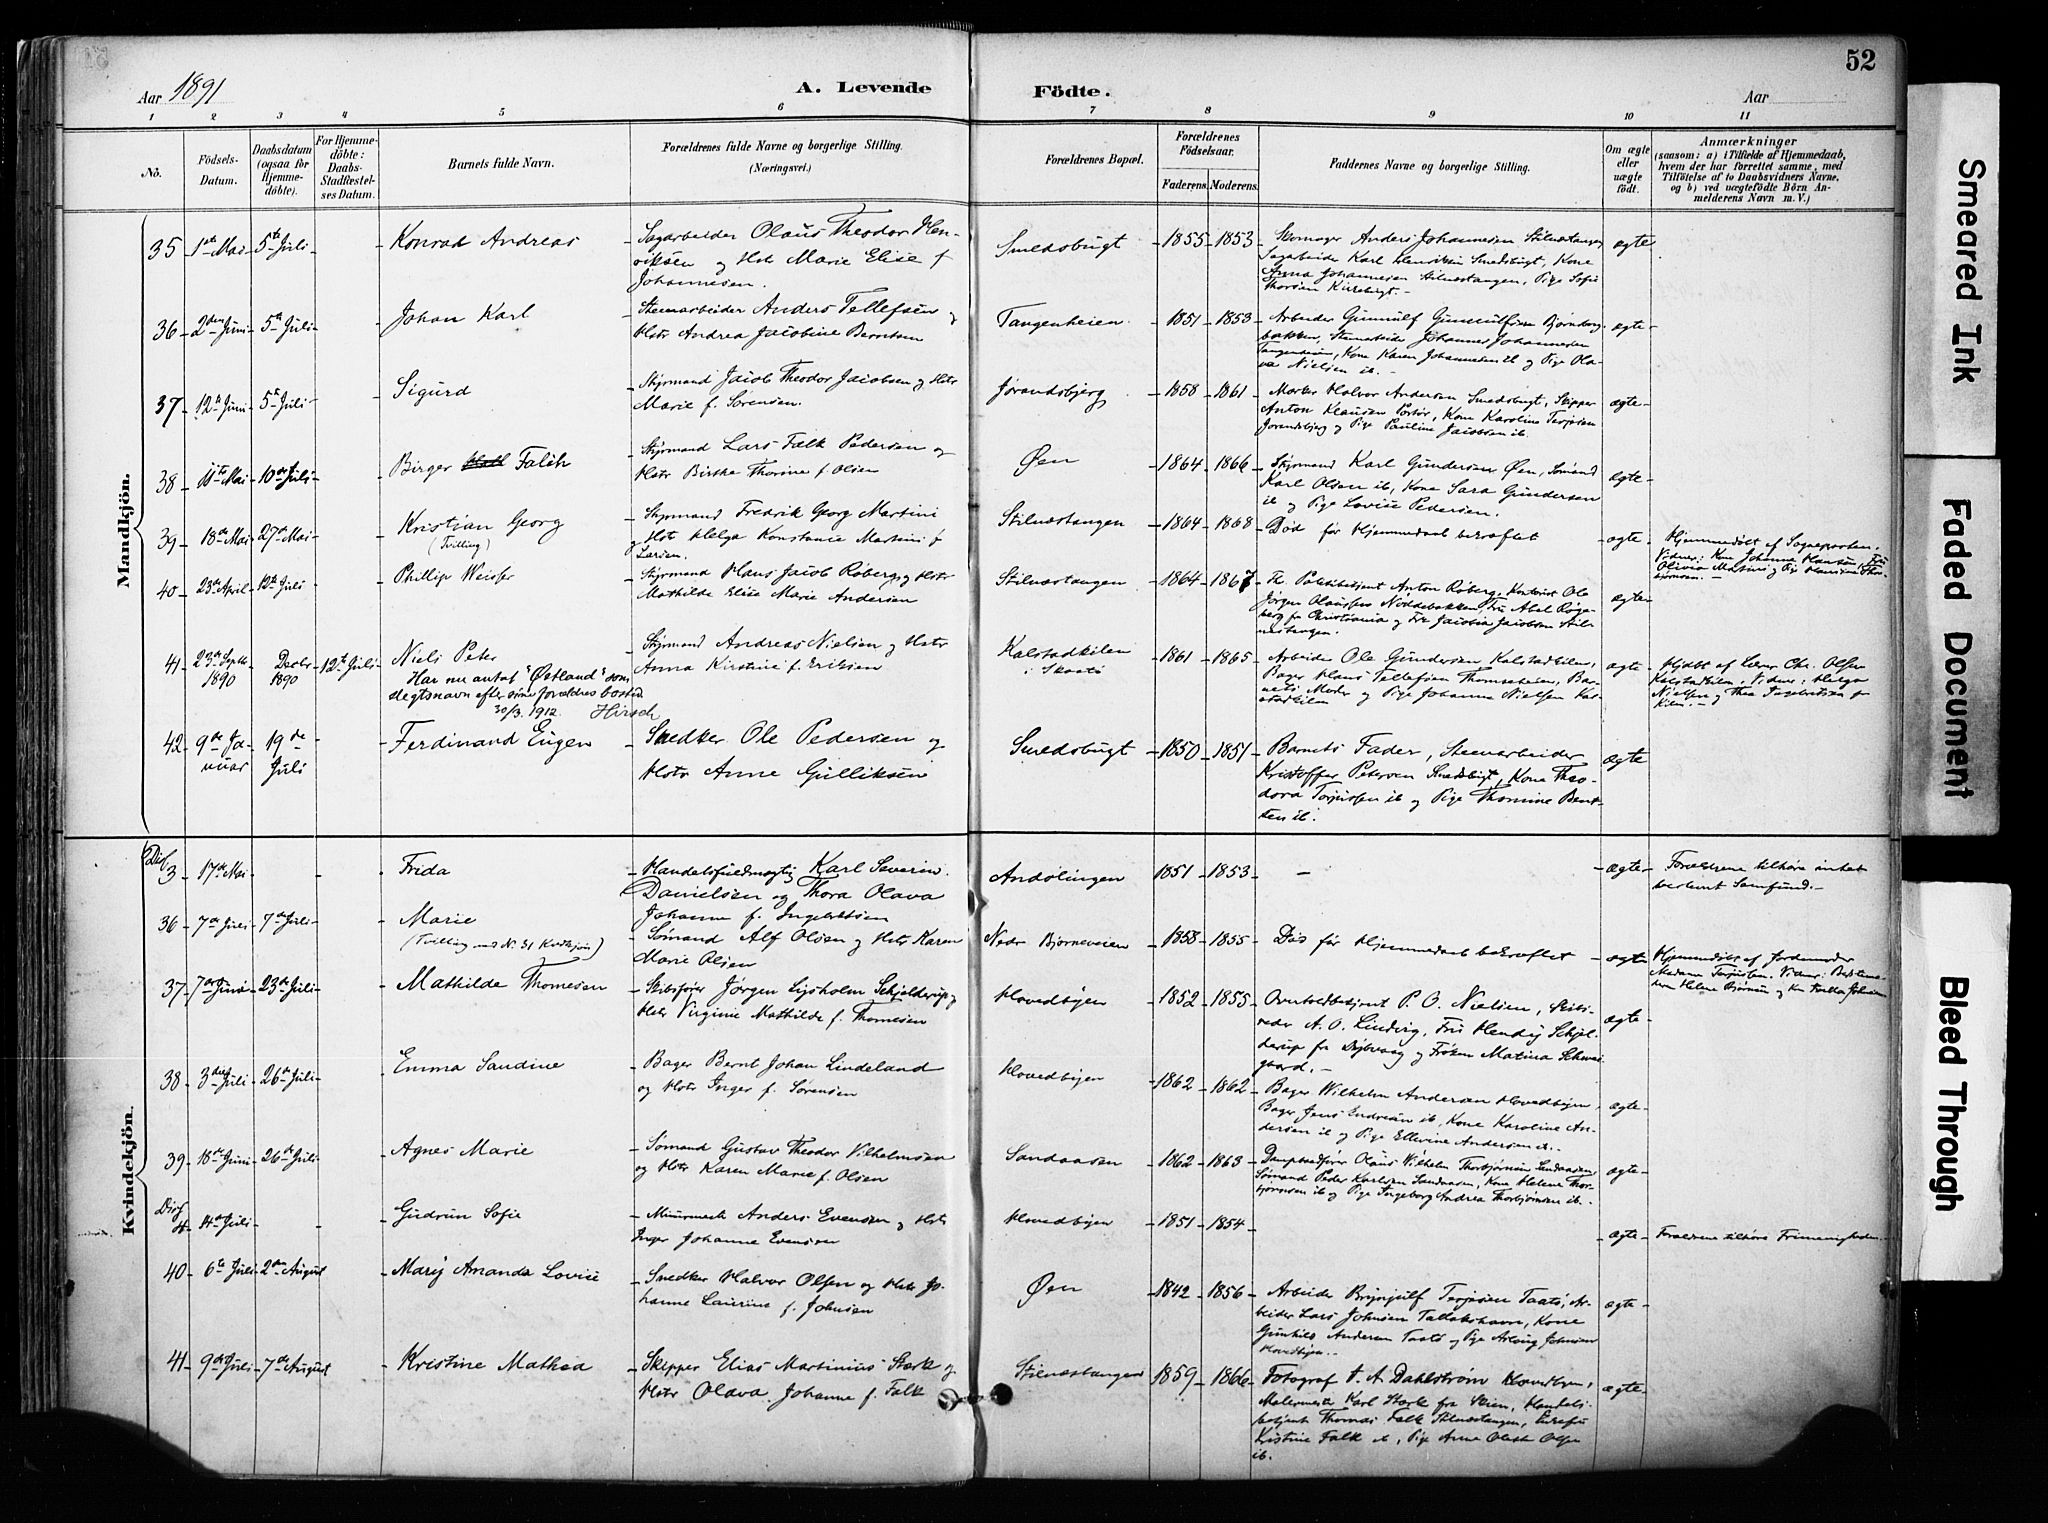 52
Aar 1891
A. Levende
Födte.
Aar
1 2 3 4 5 6 7 8 9 10 11
No.
Födsels-Datum.
Daabsdatum (ogsaa for Hjemme-döbte).
For Hjemme-döbte: Daabs-Stadfæstel-ses Datum.
Barnets fulde Navn.
Forældrenes fulde Navne og borgerlige Stilling. (Næringsvei.)
Forældrenes Bopæl.
Forældrenes Födselsaar.
Faderens. Moderens.
Faddernes Navne og borgerlige Stilling.
Om ægte eller uægte födt.
Anmærkninger
(saasom: a) i Tilfælde af Hjemmedaab,
hvem der har forrettet samme, med
Tilföielse af to Daabsvidners Navne,
og b) ved uægtefödte Börn An-
melderens Navn m. V.)
Mandkjön.
35 1ste Mai 5te Juli
Konrad Andreas
Sagarbeider Olaus Theodor Hen-
riksen og Hstr Marie Elise f
Johannesen.
Smedsbugt 1855 1853
Skomager Anders Johannesen Stilnæstangen
Sagarbeider Karl Henriksen Smedsbugt, Kone
Anna Johannesen Stilnæstangen, Pige Sofie
Thorsen
ægte
36 2den Juni 5te Juli
Johan Karl
Stenarbeider Anders Tellefsen og
Hstr Andrea Jacobine Berntsen
Tangenheien 1851 1853
Arbeider Gunnulf Gunnulfsen Bjørneberg-
bakken, Stenarbeider Johannes Johannesen
Tangenheien, Kone Karen Johannesen ib og Pige Ola-
va Nielsen ib.
ægte
37 12te Juni 5te Juli
Sigurd
Styrmand Jacob Theodor Jacobsen og Hstr
Marie f. Sørensen.
Jørandsbjerg 1858 1861
Halvor Andersen Smedsbugt, Skipper
Anton Klausen Portør, Kone Karoline Terjesen
Jørandsbjerg og Pige Pauline Jacobsen ib.
ægte
38 11te Mai 10de Juli
Birger Falch
Styrmand Lars Falk Pedersen og
Hstr Birthe Thorine f. Olsen
Øen 1864 1866
Styrmand Karl Gundersen Øen, Sømand
Karl Olsen ib, Kone Sara Gundersen
ib og Pige Lovise Pedersen.
ægte
39 18de Mai 27de Mai
Kristian Georg
(Tvilling)
Styrmand Fredrik Georg Martini
og Hstr Helga Konstance Martini f
Larsen.
Stilnæstangen 1864 1868
Død før Hjemmedaab bekræftet
ægte
Hjemmedøbt af Sognepresten.
Vidner: Kone Johanne Hansen, Fru
Olivia Martini og Pige Thor-
bjørnsen.
40 23de April 12te Juli
Phillip Weisser
Styrmand Hans Jacob Røberg og Hstr
Mathilde Elise Marie Andersen
Stilnæstangen 1864 1867
Politibetjent Anton Røberg, Kontorist Ole
Jørgen Olaussen Nøddebakken, Fru Abel Røge-
berg fra Christiania og Fru Jacobia Jacobsen Stil-
næstangen.
ægte
41 23de Septb 1890 Decbr 1890 12te Juli
Niels Peter
Har nu antat "Østland" som
slegtsnavn efter sine forældres bosted
30/3. 1912. Hirsch
Styrmand Andreas Nielsen og Hstr
Anna Kirstine f. Eriksen
Kalstadkilen
i Skaatø
1861 1865
Arbeider Ole Gundersen Kalstadkilen,
Bager Hans Tellefsen Thomsheien, Bar-
nets Moder og Pige Johanne Nielsen Kal-
stadkilen
ægte
Hjdøbt af Lærer Chr. Olsen
Kalstadkilen, Vidner: Helga
Nielsen og Thea Ingebretsen fr
Kilen.
42 9de Ja-
nuar 19de
Juli
Ferdinand Eugen
Snedker Ole Pedersen og
Hstr Anne Gulliksen
Smedsbugt 1850 1851
Barnets Fader, Stenarbeider
Kristoffer Petersen Smedsbugt, Kone Theo-
dora Terjussen ib og Pige Thomine Bent-
sen ib.
ægte
Kvindekjön.
Diss 3 17de Mai
Frida
Handelsfuldmægtig Karl Severin
Danielsen og Thora Olava
Johanne f. Ingebretsen
Andølingen 1851 1853
ægte
Forældrene tilhøre intet
bestemt Samfund.
36 7de Juli 7de Juli
Marie
(Tvilling med N. 31 Kvdkjøn)
Sømand Alf Olsen og Hstr Karen
Marie Olsen
Nedr Bjørneveien 1858 1855
Død før Hjemmedaab bekræftet
ægte
Hjemmedøbt af Jordemoder
Madam Terjussen. Vidner:
Helene Bjørnsen og
37 7de Juni 23de Juli
Mathilde Thomesen
Skibsfører Jørgen Lysholm Schjelderup og
Hstr Virginie Mathilde f. Thomesen
Hovedbyen 1852 1855
Overtoldbetjent P. O. Nielsen, Skibs-
reder A. O. Lindvig, Fru Hendy Schjel-
derup fra Dybvaag og Frøken Matina Schwei-
gaard.
ægte
38 3die Juli 26de Juli
Emma Sandine
Bager Bernt Johan Lindeland
og Hstr Inger f. Sørensen
Hovedbyen 1862 1862
Bager Wilhelm Andersen Hovedbyen,
Bager Jens Endresen ib, Kone Karoline An-
dersen ib og Pige Ellevine Andersen ib.
ægte
39 18de Juni 26de Juli
Agnes Marie
Sømand Gustav Theodor Vilhelmsen
og Hstr Karen Marie f. Olsen
Sandaasen 1862 1863
Dampbaadfører Olaus Wilhelm Thorbjørnsen Sandaasen,
Sømand Peder Karlsen Sandaasen, Kone Helene Thor-
bjørnsen ib og Pige Ingeborg Andrea Thorbjørnsen ib.
ægte
Diss 4 14de Juli
Gudrun Sofie
Muurmester Anders Evensen og Hstr
Inger Johanne Evensen
Hovedbyen 1851 1854
ægte
Forældrene tilhøre Frimenigheden.
40 6te Juli 2den August
Mary Amanda Lovise
Snedker Halvor Olsen og Hstr Jo-
hanne Laurine f. Johnsen
Øen 1842 1856
Arbeider Brynjulf Terjesen Taatø, Ar-
beider Lars Johnsen Tallakshavn, Kone
Gunhild Andersen Taatø og Pige Aslaug Johnsen
Hovedbyen.
ægte
41 9de Juli 7de August
Kristine Mathea
Skipper Elias Martinius Stærk og
Hstr Olava Johanne f. Falk
Stilnæstangen 1859 1866
Fotograf A. Dahlstrøm Hovedbyen,
Malermester Karl Stærk fra Skien, Handels-
betjent Thomas Falk Stilnæstangen,
Kristine Falk ib, Pige Anne Olsen
ib.
ægte
Smeared Ink
Faded Document
Bleed Through